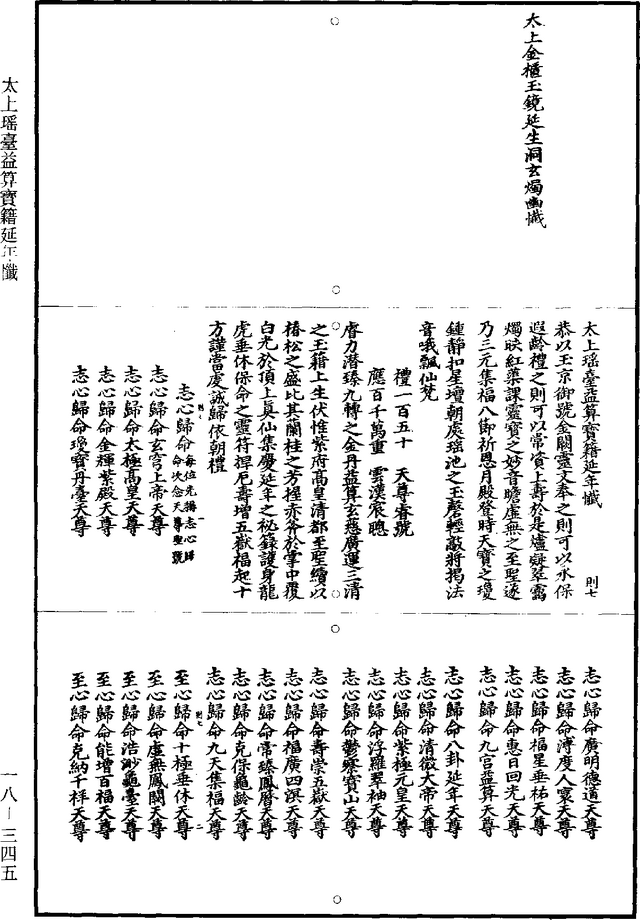 太上金櫃玉鏡延生洞玄燭幽懺
太上瑤臺益算寶籍延年懺
則七
恭以玉京御號金闕靈文奉之則可以永保
遐齡禮之則可以常資上壽於是爐凝翠靄
燭映紅蕖課靈寶之妙音瞻虛無之至聖逐
乃三元集福八御祈恩月殿登時天寶之瓊
鍾靜扣星壇朝處瑤池之玉磬輕敲將揭法
音哦飄仙梵
禮一百五十 天尊睿號
應百千萬重 雲漢宸聰
睿力潛臻九轉之金丹益算玄慈廣運三清
之玉籍上生伏惟紫府高皇清都至聖續以
椿松之盛比其蘭桂之芳握赤斧於掌中覆
白光於頂上真仙集慶延年之祕籙護身龍
虎垂休保命之靈符捍厄壽增五嶽福起十
方謹當虔誠歸依朝禮
志心歸命每位先稱志心歸
命次念天尊聖號
志心歸命玄穹上帝天尊
志心歸命太極高皇天尊
志心歸命金輝紫殿天尊
志心歸命瓊寶丹臺天尊
志心歸命廣明德道天尊
志心歸命溥度人寰天尊
志心歸命福星垂祐天尊
志心歸命惠日回光天尊
志心歸命九宮益算天尊
志心歸命八卦延年天尊
志心歸命清微大帝天尊
志心歸命紫極元皇天尊
志心歸命浮羅翠袖天尊
志心歸命鬱察寶山天尊
志心歸命壽崇五嶽天尊
志心歸命福廣四溟天尊
志心歸命常臻鳳曆天尊
志心歸命克保龜齡天尊
志心歸命九天集福天尊
則七
二
至心歸命十極垂休天尊
至心歸命虛無鳳闕天尊
至心歸命浩渺龜臺天尊
至心歸命能增百福天尊
至心歸命克納千祥天尊
太上瑤臺益算寶籍延年懺
一八—三四五